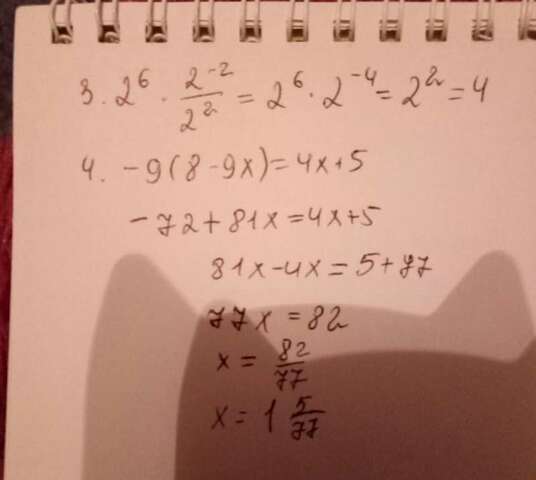 3. 2⁶ · 2⁻²/2² = 2⁶ · 2⁻⁴ = 2² = 4
4. -9(8-9x)=4x+5
-72+81x=4x+5
81x-4x=5+77
77x=82
x=82/77
x=1 5/77